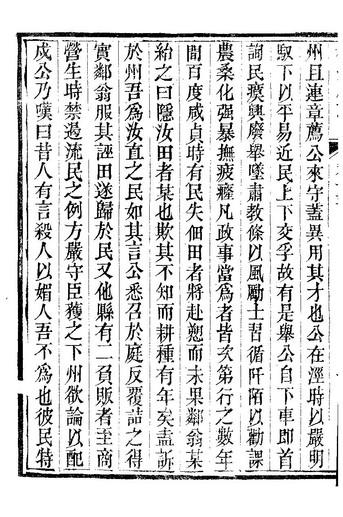 州且連章薦公來守蓋異用其才也公在涇時以嚴明
馭下以平易近民上下交孚故有是舉公自下車即首
詢民瘼興廢舉墜肅教條以風勵士習循阡陌以勸課
農桑化强暴撫疲癃凡政事當爲者皆次第行之數年
間百度咸貞時有民失佃田者將赴愬而未果鄰翁某
紿之曰隱汝田者某也欺其不知而耕種有年矣盍訴
於州吾爲汝直之民如其言公悉召於庭反覆詰之得
實鄰翁服其誣田遂歸於民又他縣有二負販者至商
營生時禁邊流民之例方嚴守臣獲之下州欲論以配
戍公乃嘆曰昔人有言殺人以媚人吾不爲也彼民特